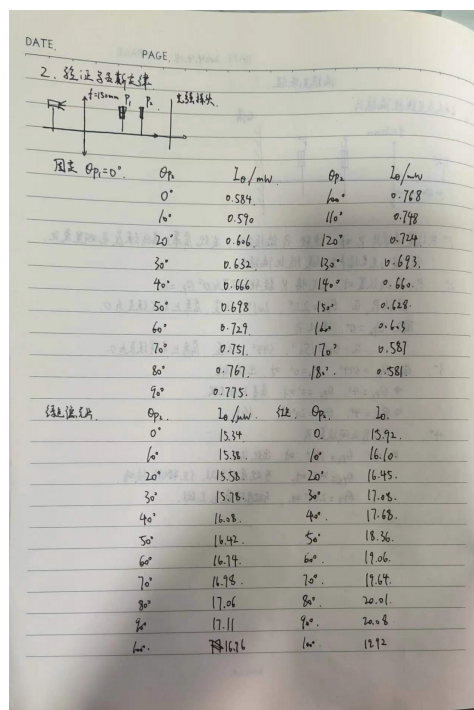 DATE.
PAGE.
2. 验证马吕斯定律
f=150mm P₁ P₂ 光强探头
固定 θp₁=0°. θp₂ I₀/mw θp₂ I₀/mw
0° 0.584. 100° 0.768
10° 0.590 110° 0.748
20° 0.606. 120° 0.724
30° 0.632 130° 0.693.
40° 0.666 140° 0.660.
50° 0.698 150° 0.628.
60° 0.729. 160° 0.603
70° 0.751. 170° 0.587
80° 0.767. 180°. 0.581
90° 0.775.
绿色偏光片 θp₂. I₀/μw. 红色 θp₂. I₀.
0° 15.34 0. 15.92.
10° 15.38. 10° 16.10.
20° 15.58 20° 16.45.
30° 15.78. 30° 17.08.
40° 16.08. 40° 17.68.
50° 16.42. 50° 18.36.
60° 16.74. 60°. 19.06.
70° 16.98. 70°. 19.64.
80° 17.06 80°. 20.01.
90° 17.11 90°. 20.08
100°. 16.76 100°. 1992